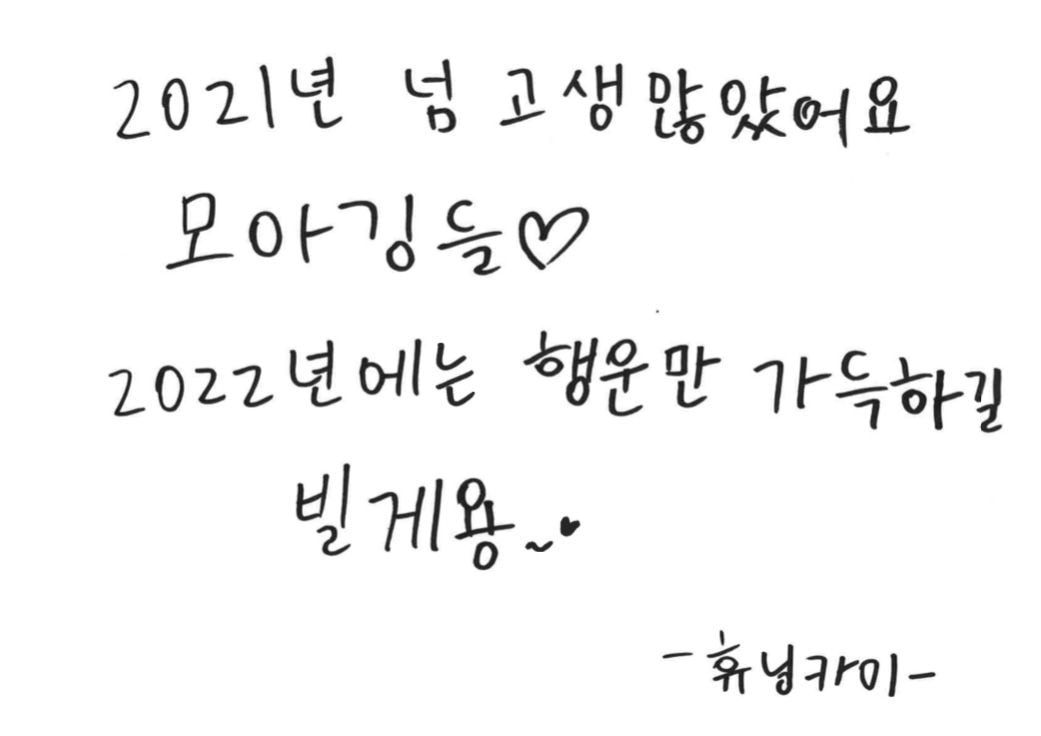 2021년 넘 고생많았어요
모아깅들♡
2022년에는 행운만 가득하길
빌게용~♥
-휴닝카이-